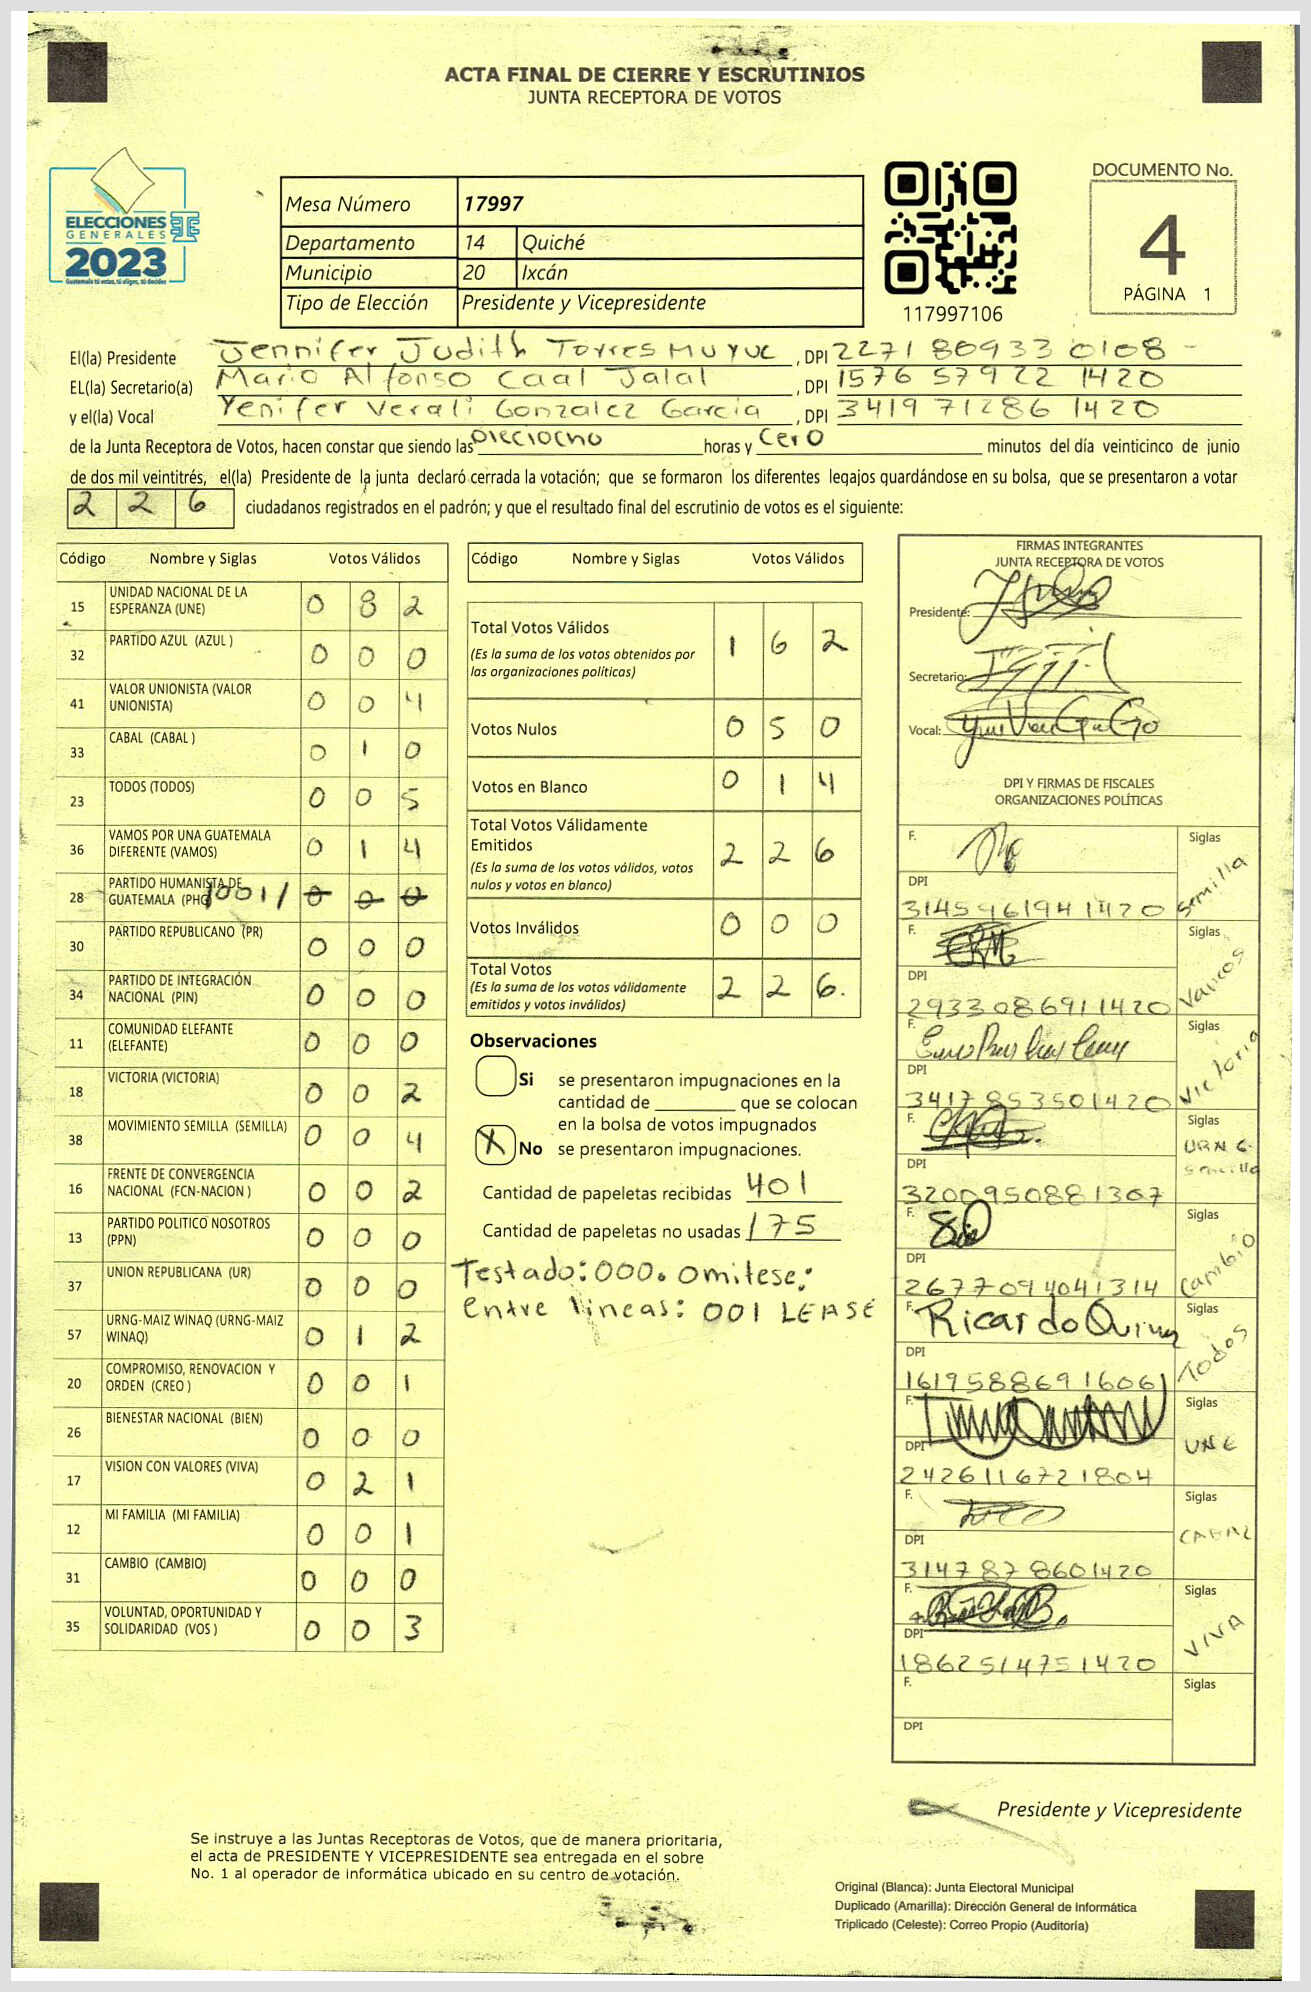 ACTA FINAL DE CIERRE Y ESCRUTINIOS
JUNTA RECEPTORA DE VOTOS
ELECCIONES
GENERALES
2023
Guatemala tú votas, tú eliges, tú decides
Mesa Número 17997
Departamento 14 Quiché
Municipio 20 Ixcán
Tipo de Elección Presidente y Vicepresidente
117997106
DOCUMENTO No.
4
PÁGINA 1
El(la) Presidente Jennifer Judith Torres Muyuc, DPI 2271 80933 0108 -
EL(la) Secretario(a) Mario Alfonso Caal Jalal, DPI 1576 57922 1420
y el(la) Vocal Yenifer Verali Gonzalez Garcia, DPI 3419 71286 1420
de la Junta Receptora de Votos, hacen constar que siendo las Dieciocho horas y cero minutos del día veinticinco de junio
de dos mil veintitrés, el(la) Presidente de la junta declaró cerrada la votación; que se formaron los diferentes legajos guardándose en su bolsa, que se presentaron a votar
226 ciudadanos registrados en el padrón; y que el resultado final del escrutinio de votos es el siguiente:
Código Nombre y Siglas Votos Válidos
15 UNIDAD NACIONAL DE LA ESPERANZA (UNE) 0 8 2
32 PARTIDO AZUL (AZUL ) 0 0 0
41 VALOR UNIONISTA (VALOR UNIONISTA) 0 0 4
33 CABAL (CABAL ) 0 1 0
23 TODOS (TODOS) 0 0 5
36 VAMOS POR UNA GUATEMALA DIFERENTE (VAMOS) 0 1 4
28 PARTIDO HUMANISTA DE GUATEMALA (PHG) /001/ 0 0 0
30 PARTIDO REPUBLICANO (PR) 0 0 0
34 PARTIDO DE INTEGRACIÓN NACIONAL (PIN) 0 0 0
11 COMUNIDAD ELEFANTE (ELEFANTE) 0 0 0
18 VICTORIA (VICTORIA) 0 0 2
38 MOVIMIENTO SEMILLA (SEMILLA) 0 0 4
16 FRENTE DE CONVERGENCIA NACIONAL (FCN-NACION ) 0 0 2
13 PARTIDO POLITICO NOSOTROS (PPN) 0 0 0
37 UNION REPUBLICANA (UR) 0 0 0
57 URNG-MAIZ WINAQ (URNG-MAIZ WINAQ) 0 1 2
20 COMPROMISO, RENOVACION Y ORDEN (CREO ) 0 0 1
26 BIENESTAR NACIONAL (BIEN) 0 0 0
17 VISION CON VALORES (VIVA) 0 2 1
12 MI FAMILIA (MI FAMILIA) 0 0 1
31 CAMBIO (CAMBIO) 0 0 0
35 VOLUNTAD, OPORTUNIDAD Y SOLIDARIDAD (VOS ) 0 0 3
Código Nombre y Siglas Votos Válidos
Total Votos Válidos 1 6 2
(Es la suma de los votos obtenidos por
las organizaciones políticas)
Votos Nulos 0 5 0
Votos en Blanco 0 1 4
Total Votos Válidamente
Emitidos 2 2 6
(Es la suma de los votos válidos, votos
nulos y votos en blanco)
Votos Inválidos 0 0 0
Total Votos 2 2 6.
(Es la suma de los votos válidamente
emitidos y votos inválidos)
Observaciones
Si se presentaron impugnaciones en la
cantidad de ________ que se colocan
en la bolsa de votos impugnados
X No se presentaron impugnaciones.
Cantidad de papeletas recibidas 401
Cantidad de papeletas no usadas 175
Testado: 000. Omitese:
Entre lineas: 001 LEASE
FIRMAS INTEGRANTES
JUNTA RECEPTORA DE VOTOS
Presidente:
Secretario:
Vocal:
DPI Y FIRMAS DE FISCALES
ORGANIZACIONES POLÍTICAS
F. Siglas Semilla
DPI 3145961941420
F. Siglas Vamos
DPI 2933086911420
F. Siglas Victoria
DPI 3417853501420
F. Siglas URNG
DPI 3200950881307
F. Siglas Cambio
DPI 2677094041314
F. Ricardo Siglas Todos
DPI 1619588691606
F. Siglas UNE
DPI 2426116721804
F. Siglas CABAL
DPI 3147878601420
F. Siglas VIVA
DPI 1862514751420
F. Siglas
DPI
Presidente y Vicepresidente
Se instruye a las Juntas Receptoras de Votos, que de manera prioritaria,
el acta de PRESIDENTE Y VICEPRESIDENTE sea entregada en el sobre
No. 1 al operador de informática ubicado en su centro de votación.
Original (Blanca): Junta Electoral Municipal
Duplicado (Amarilla): Dirección General de Informática
Triplicado (Celeste): Correo Propio (Auditoría)